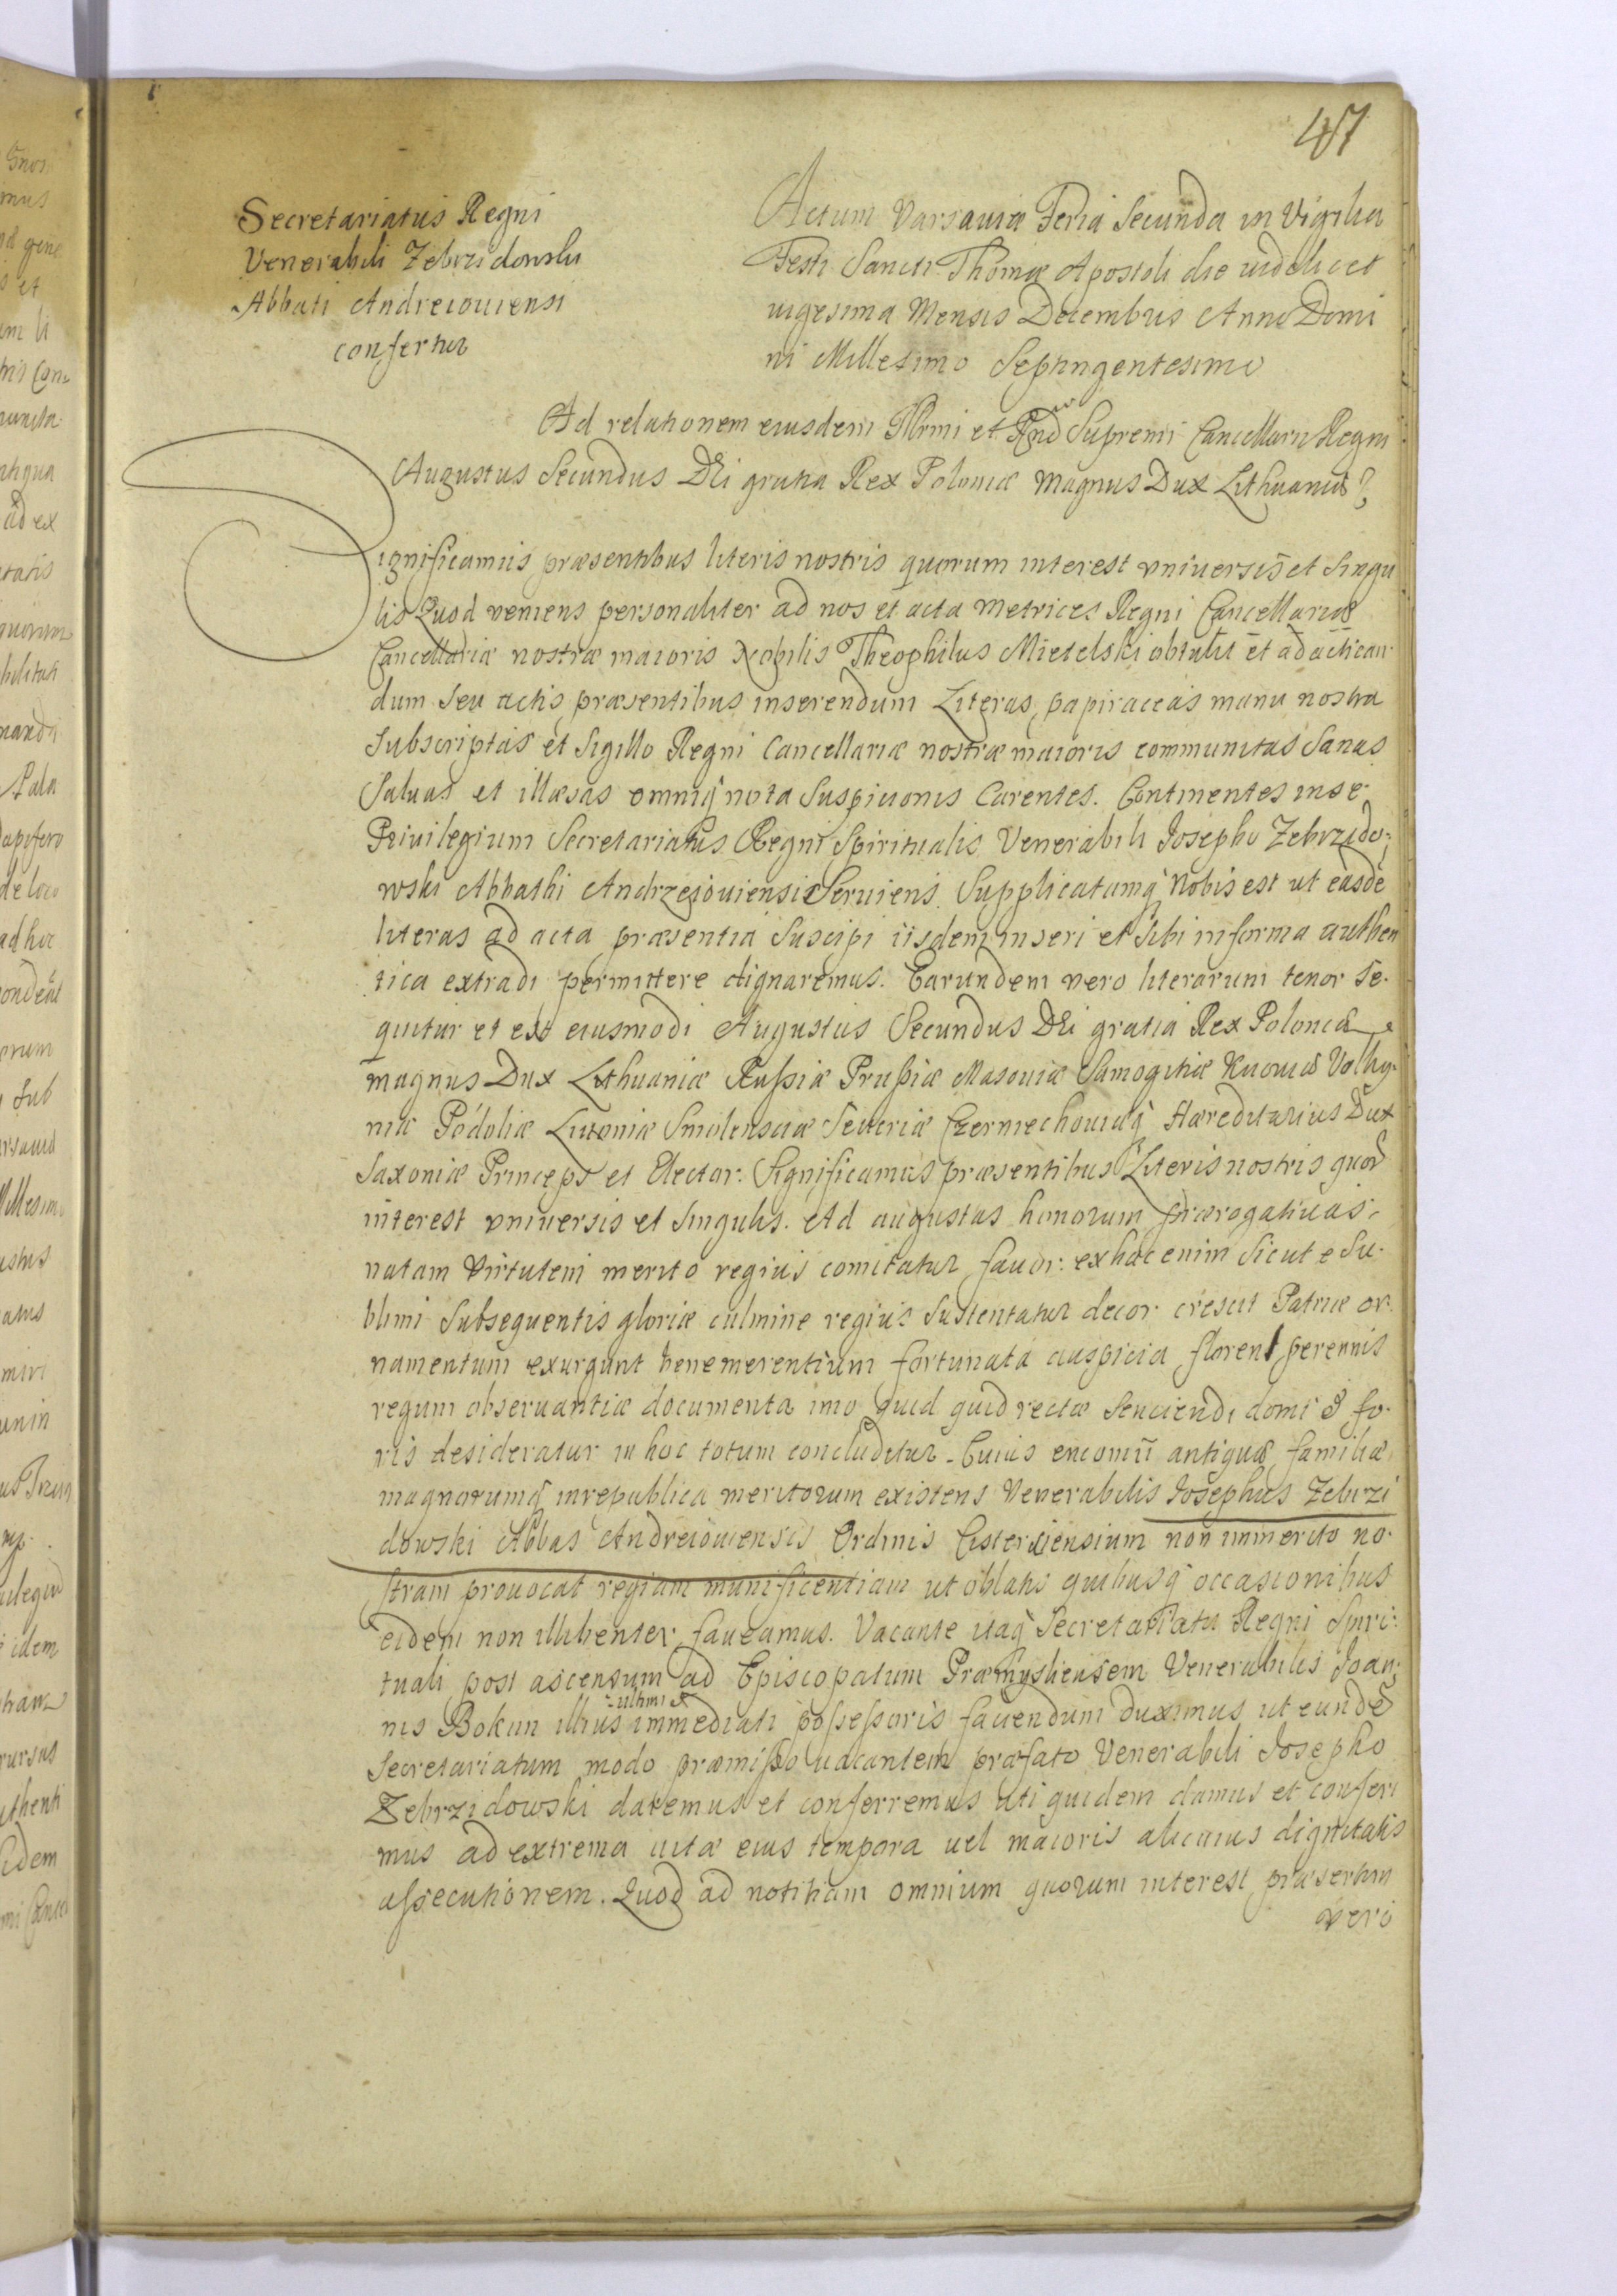 47
Secretariatus Regni
Venerabili Zebrzidowski
Abbati Andreiouiensi
confertur
Actum Varsauiæ Feria Secunda in Vigilia
Festi Sancti Thomæ Apostoli die uidelicet
uigesima Mensis Decembris Anno Domi
ni Millesimo Septingentesimo
Ad relationem eiusdem Illrmi et Rnd Supremi Cancellarii Regni
Augustus Secundus DEi gratia Rex Poloniæ Magnus Dux Lithuaniæ
Significamus præsentibus literis nostris quorum interest vniversis et Singu
lis Quod veniens personaliter ad nos et acta Metrices Regni Cancellariæ
Cancellariæ nostræ maioris Nobilis Theophilus Mietelski obtulit et ad actican
dum seu actis præsentibus inserendum Literas papiraceas manu nostra
Subscriptas et Sigillo Regni Cancellariæ nostræ maioris communitas Sanas
Saluas et illæsas omniq nota Suspicionis Carentes. Continentes in se
Priuilegium Secretariatus Regni Spiritualis Venerabili Josepho Zebrzido:
wski Abbathi Andrzejouiensi Seruiens. Supplicatumq Nobis est ut easdē
literas ad acta præsentia Suscipi iisdem inseri et Sibi in forma authen
tica extradi permittere dignaremus. Earundem vero literarum tenor Se-
quitur et est eiusmodi Augustus Secundus DEi gratia Rex Poloniæ
magnus Dux Lithuaniæ Rußiæ Prußiæ Masouiæ Samogitiæ Kiiouiæ Volhy-
niæ Podoliæ Liuoniæ Smolensciæ Seueriæ Czerniechouiæq Hæreditarius Dux
Saxoniæ Princeps et Elector: Significamus præsentibus Literis nostris quor
interest vniuersis et Singulis. Ad augustas honorum prærogatiuas
natam Virtutem merito regius comitatur fauor: ex hac enim Sicut e Su-
blimi Subsequentis gloriæ culmine regius Sustentatur decor crescit Patriæ or
namentum exurgunt benemerentium fortunata auspicia florent perennis
regum obseruantiæ documenta imo quid quid rectæ Senciendi domi & fo-
ris desideratur in hoc totum concluditur. Cuius encomii antiquæ familiæ
magnorumq in republica meritorum existens Venerabilis Josephus Zebrzi
dowski Abbas Andreiouiensis Ordinis Cisterciensium non immerito no-
stram prouocat regiam munificentiam ut oblatis quibusq occasionibus
eidem non illibenter faueamus. Vacante itaq Secretariatu Regni Spiri:
tuali post ascensum ad Episcopatum Præmysliensem Venerabilis Joan:
nis Bokun illius ultimi & immediati possessoris fauendum duximus ut eundē
Secretariatum modo præmißo uacantem præfato Venerabili Josepho
Zebrzidowski daremus et conferremus uti quidem damus et conferi
mus ad extrema uitæ eius tempora uel maioris alicuius dignitatis
assecutionem. Quod ad notitiam omnium quorum interest præsertim
veri